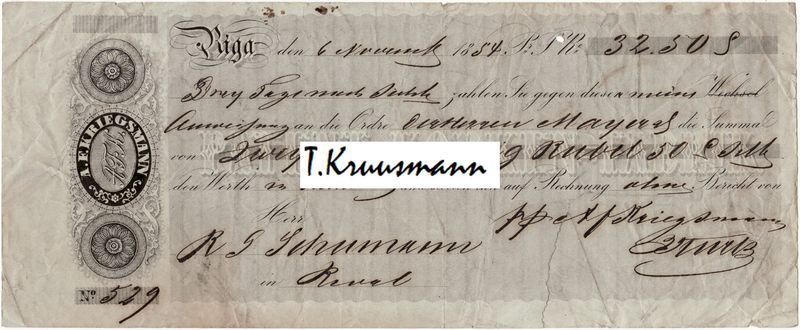 Riga den 6 Novemb 1854. Pr. SRo. 32.50 S
Drey Tage nach Sicht zahlen Sie gegen diesen meine Wechsel
Anweisung an die Ordre der Herren Mayer & die Summa
von Rubel 50 C
T.Kruusmann
den Werth in auf Rechnung ohne Bericht von
Herr pp A F Kriegsmann
R G Schumann
in Reval
A.F.KRIEGSMANN
No. 529